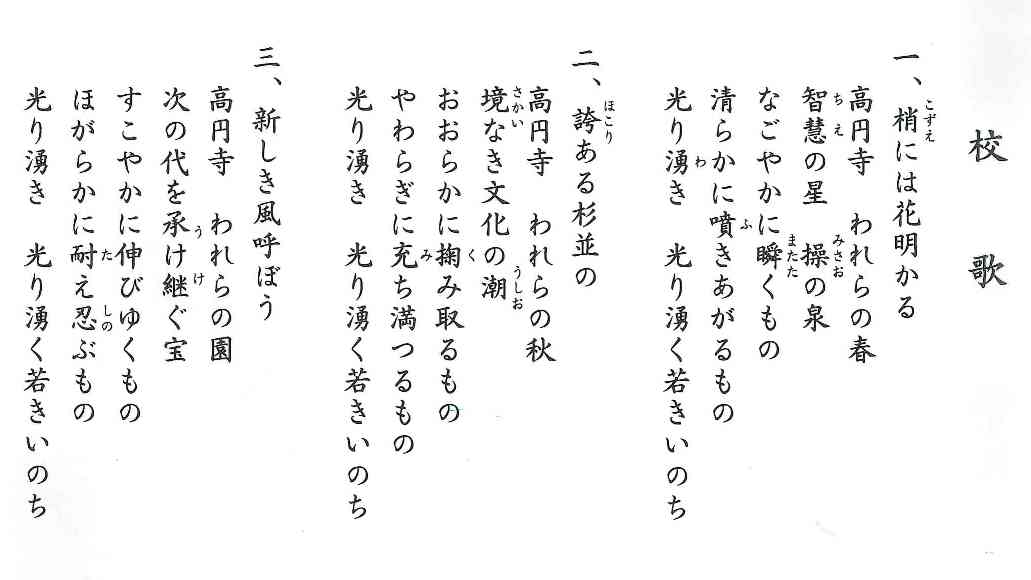 校歌
一、梢には花明かる
高円寺　われらの春
智慧の星　操の泉
なごやかに瞬くもの
清らかに噴きあがるもの
光り湧き　光り湧く若きいのち
二、誇ある杉並の
高円寺　われらの秋
境なき文化の潮
おおらかに掬み取るもの
やわらぎに充ち満つるもの
光り湧き　光り湧く若きいのち
三、新しき風呼ぼう
高円寺　われらの園
次の代を承け継ぐ宝
すこやかに伸びゆくもの
ほがらかに耐え忍ぶもの
光り湧き　光り湧く若きいのち